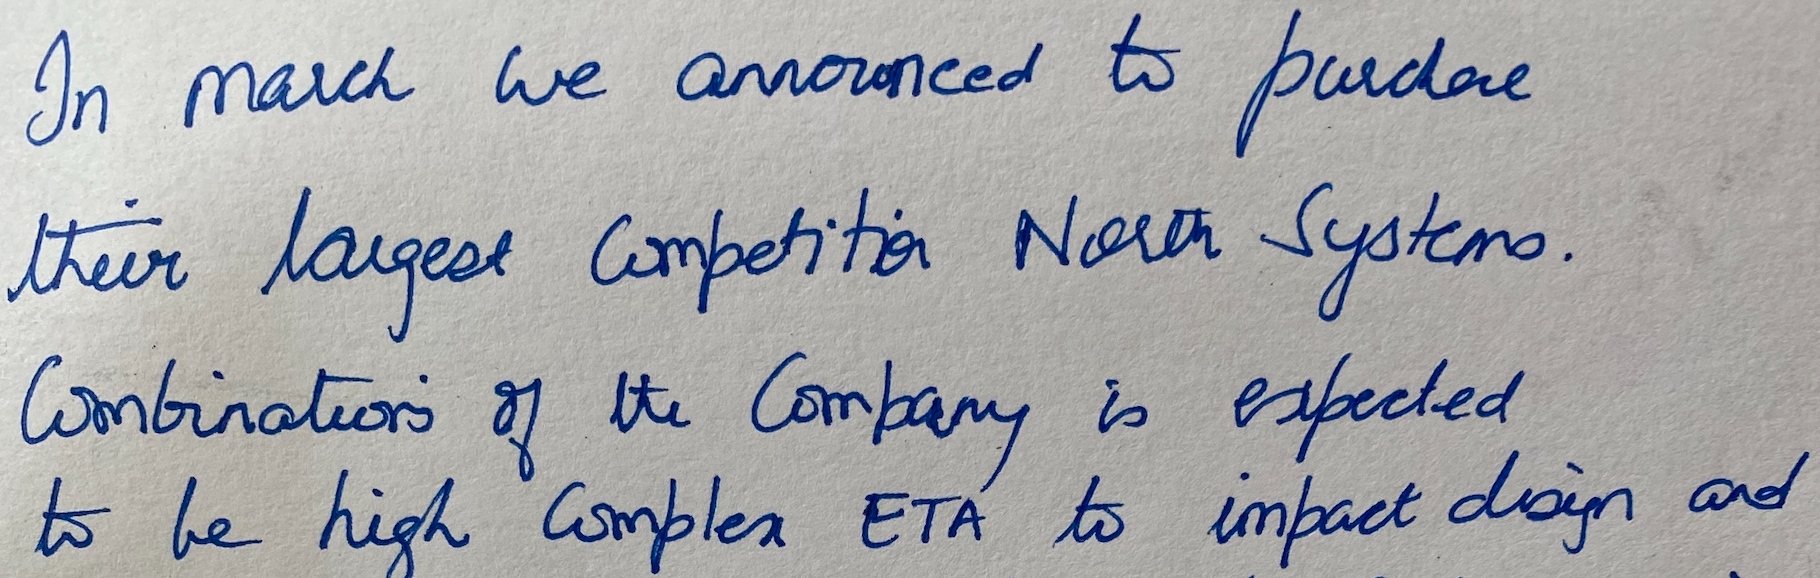 In march we announced to purchase
their largest Competitior North Systems.
Combinations of the Company is expected
to be high Complex ETA to impact design and